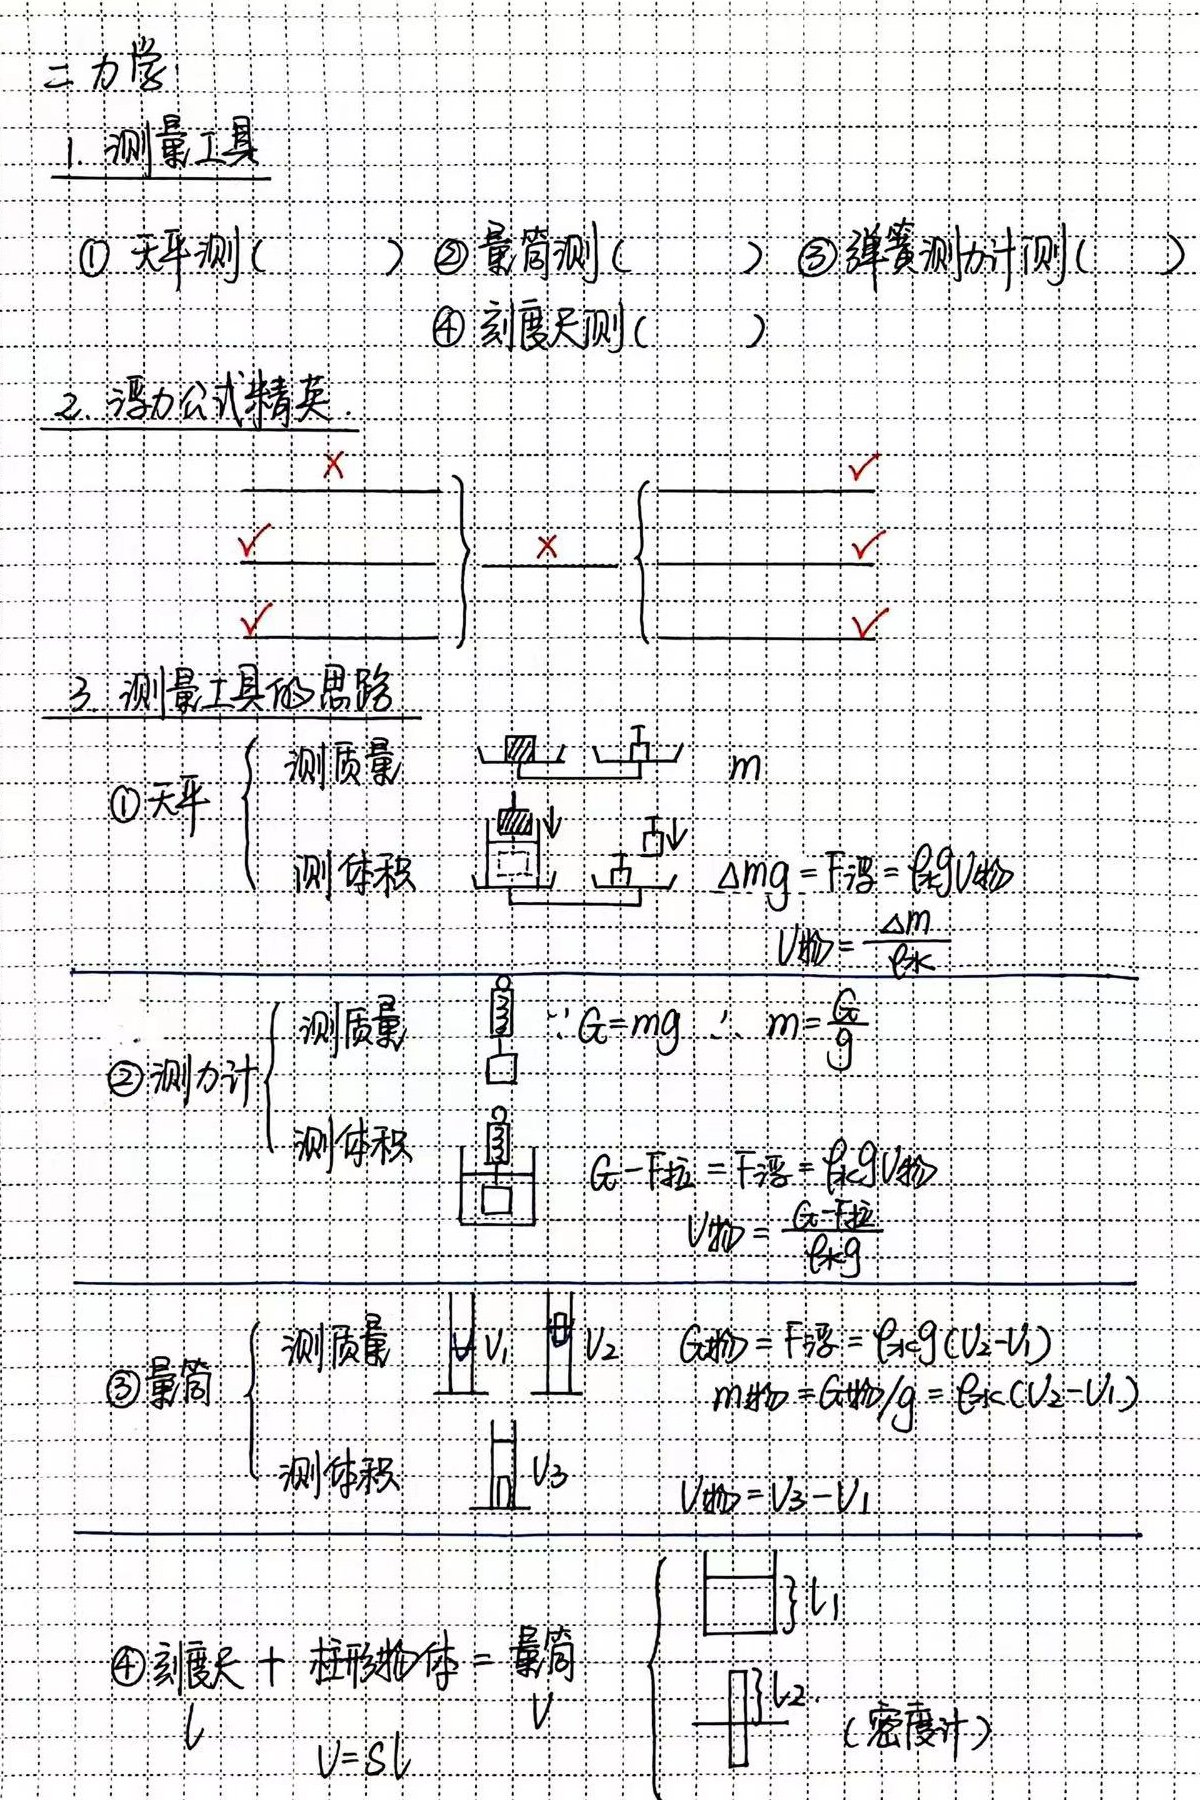 二力学
1. 测量工具
① 天平测(      ) ② 量筒测(      ) ③ 弹簧测力计测(      )
④ 刻度尺测(      )
2. 浮力公式精英.
3. 测量工具的思路
① 天平
测质量 m
测体积 Δmg=F浮=ρ水gV物
V物=Δm/ρ水
② 测力计
测质量 ∵G=mg ∴ m=G/g
测体积
G-F拉=F浮=ρ水gV物
V物=(G-F拉)/(ρ水g)
③ 量筒
测质量 V1 V2 G物=F浮=ρ水g(V2-V1)
m物=G物/g=ρ水(V2-V1)
测体积 V3 V物=V3-V1
④ 刻度尺 + 柱形物体 = 量筒
l V
V=Sl
l1
l2.
(密度计)